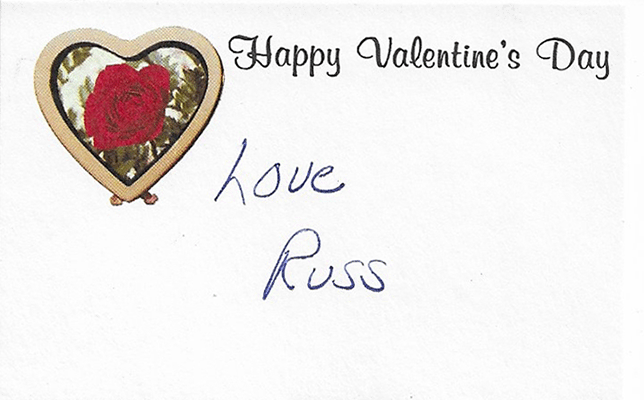 Happy Valentine's Day
Love
Russ